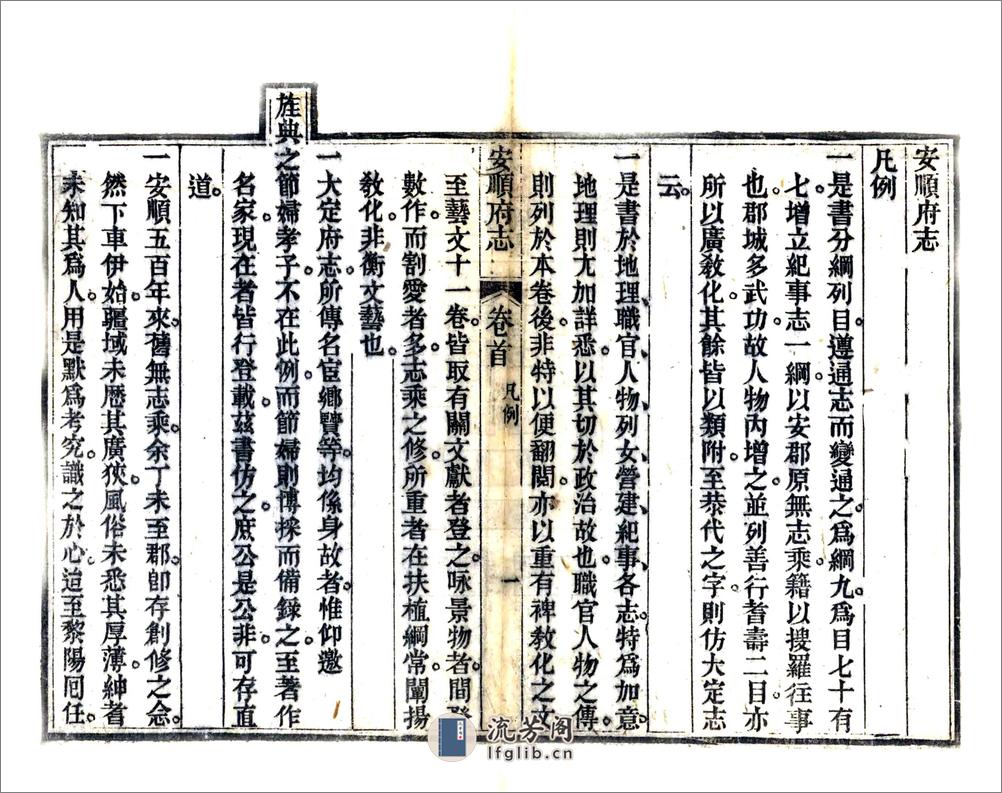 安順府志
凡例
一是書分綱列目遵通志而變通之爲綱九爲目七十有
七增立紀事志一綱以安郡原無志乘籍以搜羅往事
也郡城多武功故人物內增之並列善行耆壽二目亦
所以廣敎化其餘皆以類附至恭代之字則仿大定志
云
一是書於地理職官人物列女營建紀事各志特爲加意
地理則尤加詳悉以其切於政治故也職官人物之傳
則列於本卷後非特以便翻閱亦以重有裨敎化之文
安順府志 卷首 凡例 一
至藝文十一卷皆取有關文獻者登之咏景物者間登
數作而割愛者多志乘之修所重者在扶植綱常闡揚
敎化非衡文藝也
一大定府志所傳名宦鄉賢等均係身故者惟仰邀
旌典之節婦孝子不在此例而節婦則博採而備錄之至著作
名家現在者皆行登載茲書仿之庶公是公非可存直
道
一安順五百年來舊無志乘余丁未至郡卽存創修之念
然下車伊始疆域未歷其廣狹風俗未悉其厚薄紳耆
未知其爲人用是默爲考究識之於心迨至黎陽囘任
流芳阁
lfglib.cn